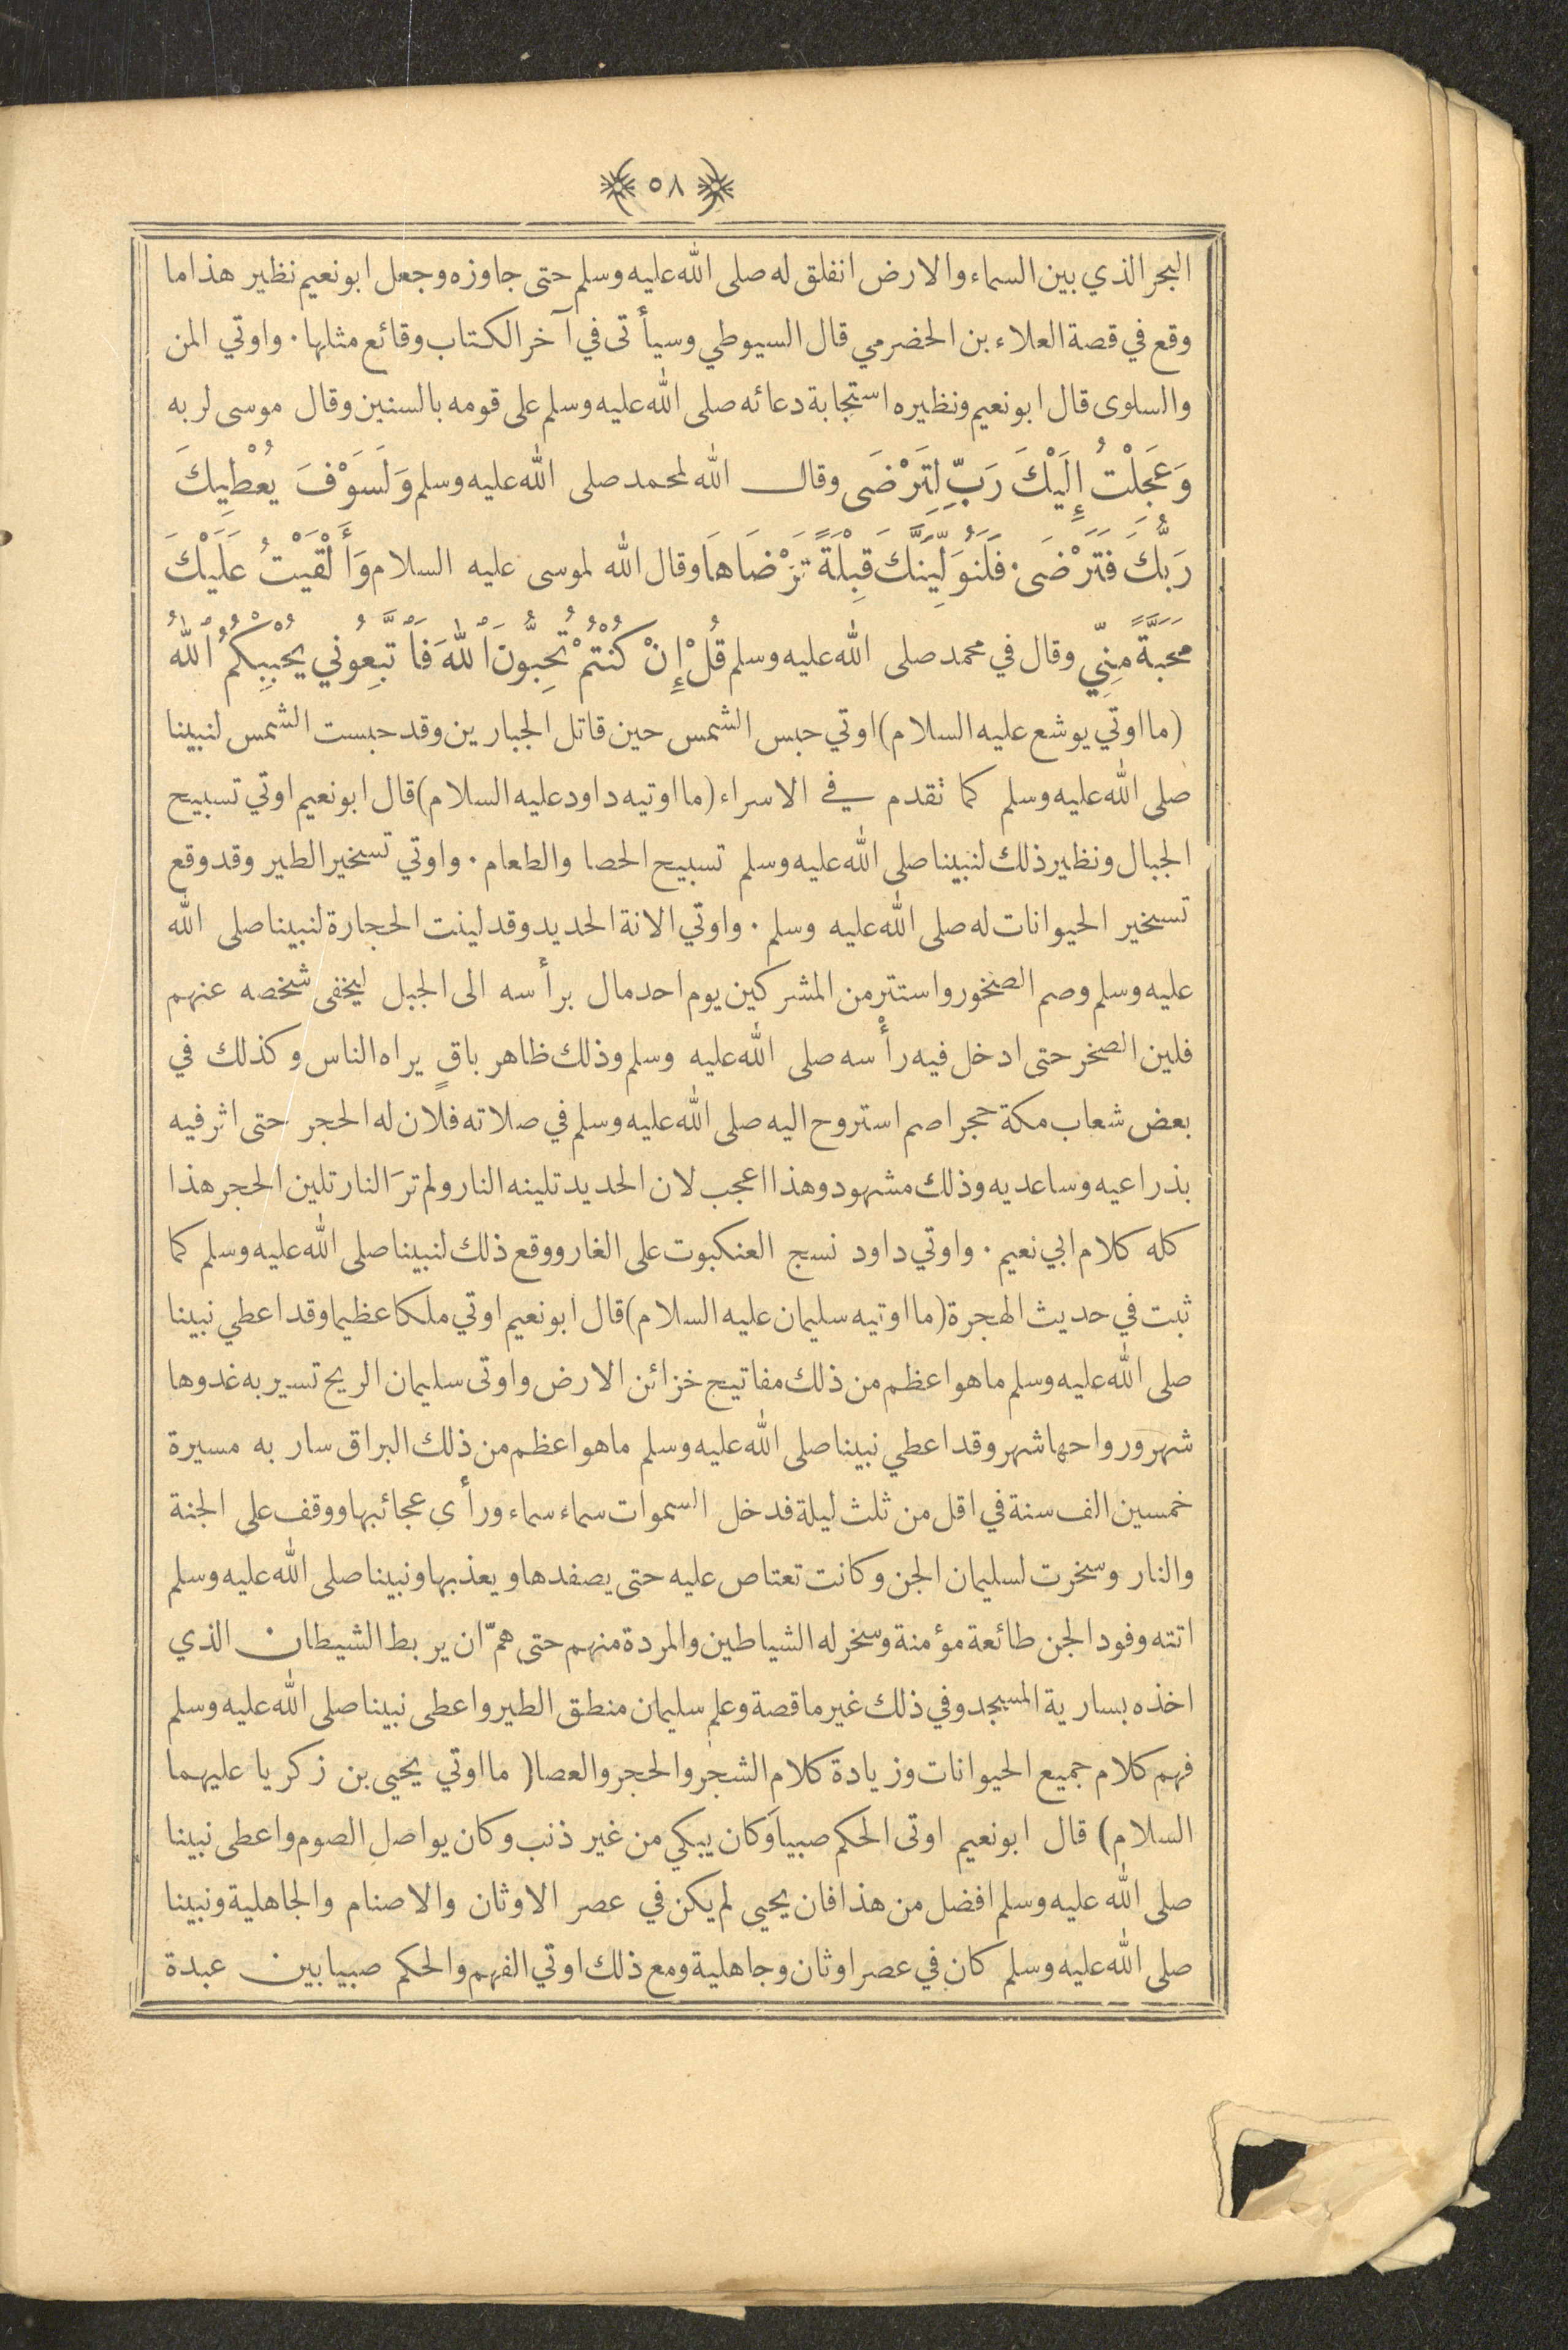 ٥٨
البحر الذي بين السماء والارض انفلق له صلى الله عليه وسلم حتى جاوزه وجعل ابو نعيم نظير هذا ما
وقع في قصة العلاء بن الحضرمي قال السيوطي وسيأتى في آخر الكتاب وقائع مثلها . واوتي المن
والسلوى قال ابو نعيم ونظيره استجابة دعائه صلى الله عليه وسلم على قومه بالسنين وقال موسى لربه
وَعَجِلْتُ إِلَيْكَ رَبِّ لِتَرْضَى وقال الله لمحمد صلى الله عليه وسلم وَلَسَوْفَ يُعْطِيكَ
رَبُّكَ فَتَرْضَى . فَلَنُوَلِّيَنَّكَ قِبْلَةً تَرْضَاهَا وقال الله لموسى عليه السلام وَأَلْقَيْتُ عَلَيْكَ
مَحَبَّةً مِنِّي وقال في محمد صلى الله عليه وسلم قُلْ إِنْ كُنْتُمْ تُحِبُّونَ ٱللهَ فَٱتَّبِعُونِي يُحْبِبْكُمُ ٱللهُ
(ما اوتي يوشع عليه السلام) اوتي حبس الشمس حين قاتل الجبارين وقد حبست الشمس لنبينا
صلى الله عليه وسلم كما تقدم في الاسراء (ما اوتيه داود عليه السلام) قال ابو نعيم اوتي تسبيح
الجبال ونظير ذلك لنبينا صلى الله عليه وسلم تسبيح الحصا والطعام . واوتي تسخير الطير وقد وقع
تسخير الحيوانات له صلى الله عليه وسلم . واوتي الانة الحديد وقد لينت الحجارة لنبينا صلى الله
عليه وسلم وصم الصخور واستتر من المشركين يوم احد مال برأسه الى الجبل ليخفى شخصه عنهم
فلين الصخر حتى ادخل فيه رأسه صلى الله عليه وسلم وذلك ظاهر باقٍ يراه الناس وكذلك في
بعض شعاب مكة حجر اصم استروح اليه صلى الله عليه وسلم في صلاته فلان له الحجر حتى اثر فيه
بذراعيه وساعديه وذلك مشهود وهذا اعجب لان الحديد تلينه النار ولم ترَ النار تلين الحجر هذا
كله كلام ابي نعيم . واوتي داود نسج العنكبوت على الغار ووقع ذلك لنبينا صلى الله عليه وسلم كما
ثبت في حديث الهجرة (ما اوتيه سليمان عليه السلام) قال ابو نعيم اوتي ملكا عظيما وقد اعطي نبينا
صلى الله عليه وسلم ما هو اعظم من ذلك مفاتيح خزائن الارض واوتى سليمان الريح تسير به غدوها
شهر ورواحها شهر وقد اعطي نبينا صلى الله عليه وسلم ما هو اعظم من ذلك البراق سار به مسيرة
خمسين الف سنة في اقل من ثلث ليلة فدخل السموات سماء سماء ورأى عجائبها ووقف على الجنة
والنار وسخرت لسليمان الجن وكانت تعتاص عليه حتى يصفدها ويعذبها ونبينا صلى الله عليه وسلم
اتته وفود الجن طائعة مؤمنة وسخر له الشياطين والمردة منهم حتى همّ ان يربط الشيطان الذي
اخذه بسارية المسجد وفي ذلك غير ما قصة وعلم سليمان منطق الطير واعطى نبينا صلى الله عليه وسلم
فهم كلام جميع الحيوانات وزيادة كلام الشجر والحجر والعصا ( ما اوتي يحيى بن زكريا عليهما
السلام) قال ابو نعيم اوتى الحكم صبيا وكان يبكي من غير ذنب وكان يواصل الصوم واعطى نبينا
صلى الله عليه وسلم افضل من هذا فان يحيى لم يكن في عصر الاوثان والاصنام والجاهلية ونبينا
صلى الله عليه وسلم كان في عصر اوثان وجاهلية ومع ذلك اوتي الفهم والحكم صبيا بين عبدة